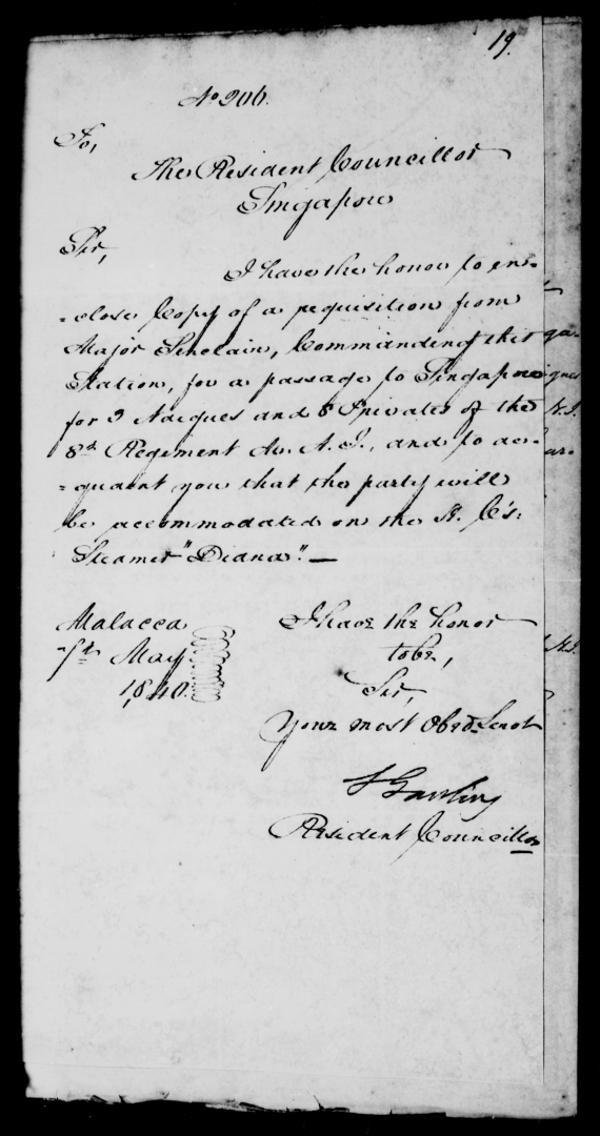 19.
No 206.
To,
The Resident Councillor
Singapore
Sir,
I have the honor to en-
-close Copy of a requisition from
Major Sinclair, Commanding this
Station, for a passage to Singapore
for 9 Naiques and 8 Privates of the
8th Regiment N. I., and to ac-
-quaint you that the party will
be accommodated on the H. C's.
Steamer "Diana". —
Malacca
May
1840.
I have the honor
to be,
Sir,
Your most Obedt. Servt
Resident Councillor